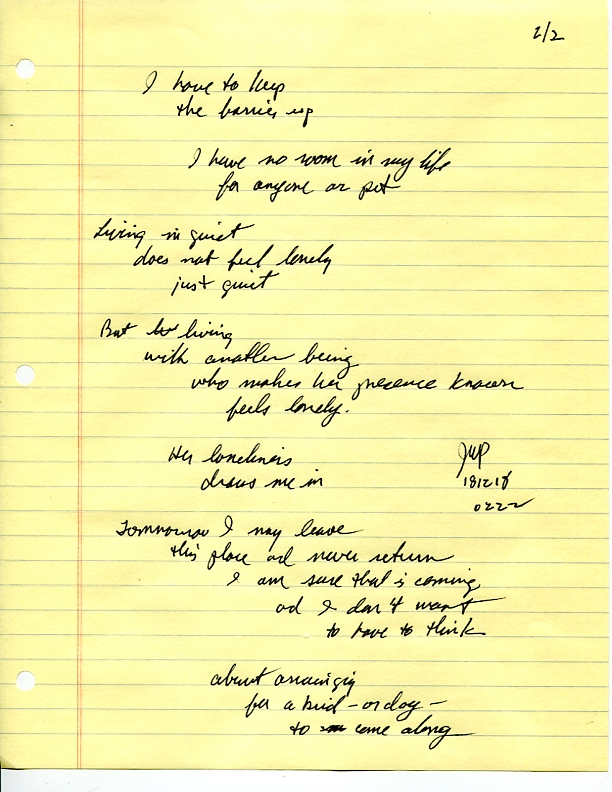 2/2
I have to keep
the barrier up
I have no room in my life
for anyone or pet
Living in quiet
does not feel lonely
just quiet
But living
with another being
who makes her presence known
feels lonely.
Her loneliness
draws me in
JWP
181218
0222
Tomorrow I may leave
this place ad never return
I am sure that is coming
ad I don't want
to have to think
about arranging
for a bird - or dog -
to come along